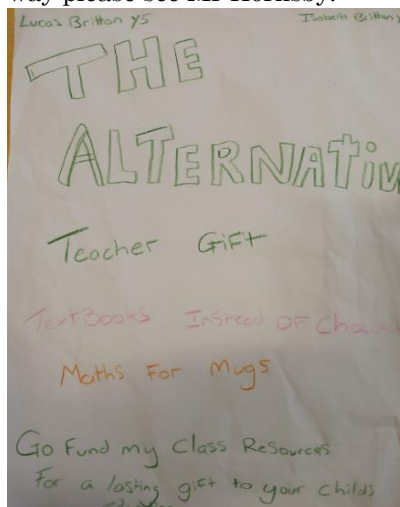 Lucas Britton Y5 Isabella Britton
THE
ALTERNATIV
Teacher Gift
TextBooks Instead OF
Maths For Mugs
Go Fund my Class Resources
For a lasting gift to your childs